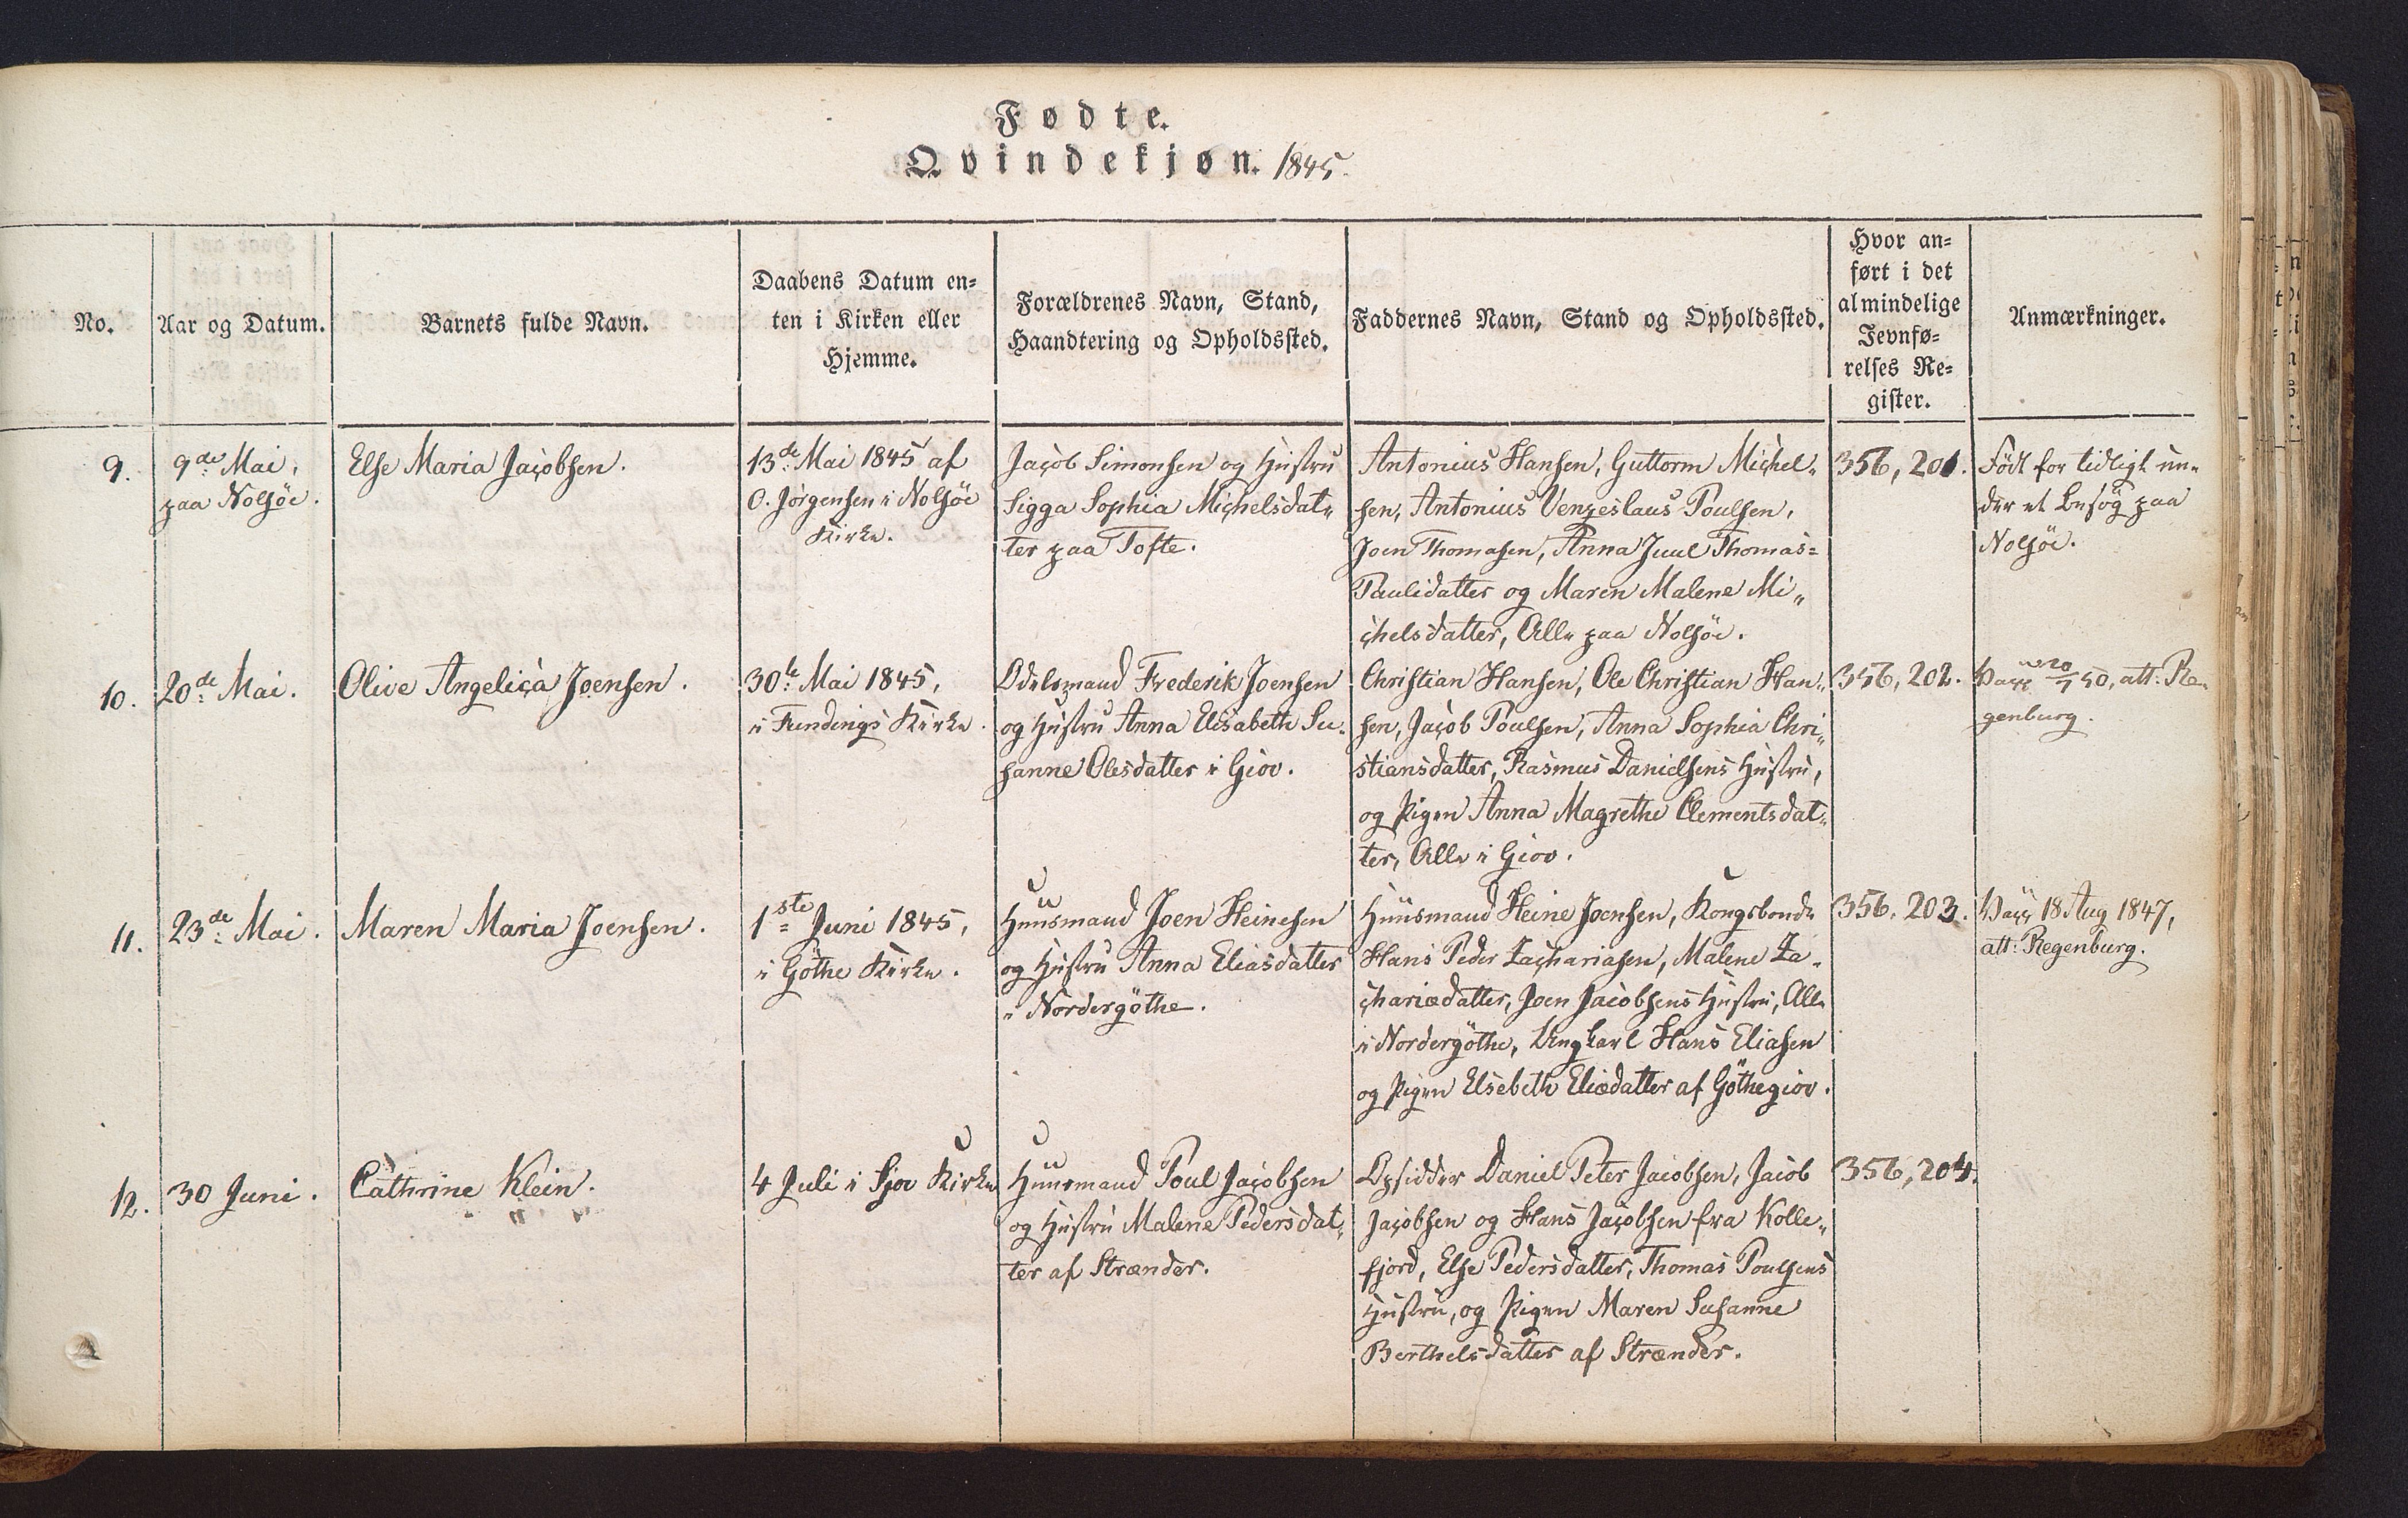 Fødte.
Qvindekjøn. 1845.
No.
Aar og Datum.
Barnets fulde Navn.
Daabens Datum en=
ten i Kirken eller
Hjemme.
Forældrenes Navn, Stand,
Haandtering og Opholdssted.
Faddernes Navn, Stand og Opholdssted.
Hvor an=
ført i det
almindelige
Jevnfø=
relses Re=
gister.
Anmærkninger.
9.
9de Mai,
paa Nolsöe.
Else Maria Jacobsen.
13de Mai 1845 af
O. Jörgensen i Nolsöe
Kirke.
Jacob Simonsen og Hustru
Sigga Sophia Michelsdat„
ter paa Tofte.
Antonius Hansen, Guttorm Michel„
sen, Antonius Venzeslaus Poulsen,
Joen Thomasen, Anna Juul Thomas=
Paulidatter og Maren Malene Mi„
chelsdatter, Alle paa Nolsöe.
356, 201.
Födt for tidligt un„
der et Besög paa
Nolsöe.
10.
20de Mai.
Olive Angelica Joensen.
30te Mai 1845,
i Fundings Kirke.
Odelsmand Frederik Joensen
og Hustru Anna Elisabeth Su„
sanne Olesdatter i Giov.
Christian Hansen, Ole Christian Han„
sen, Jacob Poulsen, Anna Sophia Chri„
stiansdatter, Rasmus Danielsens Hustru,
og Pigen Anna Magrethe Clementsdat„
ter, Alle i Giov.
356, 202.
Vacc 20/7 50, att: Re„
genburg.
11.
23de Mai.
Maren Maria Joensen.
1ste Juni 1845,
i Göthe Kirke.
Huusmand Joen Heinesen
og Hustru Anna Eliasdatter
i Nordergöthe.
Huusmand Heine Joensen, Kongsbonde
Hans Peder Zachariasen, Malene Za„
chariædatter, Joen Jacobsens Hustru, Alle
i Nordergöthe, Ungkarl Hans Eliasen
og Pigen Elsebeth Eliædatter af Göthegiov.
356, 203.
Vacc 18 Aug 1847,
att: Regenburg.
12.
30 Juni.
Cathrine Klein.
4 Juli i Sjov Kirke
Huusmand Poul Jacobsen
og Hustru Malene Pedersdat„
ter af Strænder.
Opsidder Daniel Peter Jacobsen, Jacob
Jacobsen og Hans Jacobsen fra Kolle„
fjord, Else Pedersdatter, Thomas Poulsens
Hustru, og Pigen Maren Susanne
Berthelsdatter af Strænder.
356, 204.